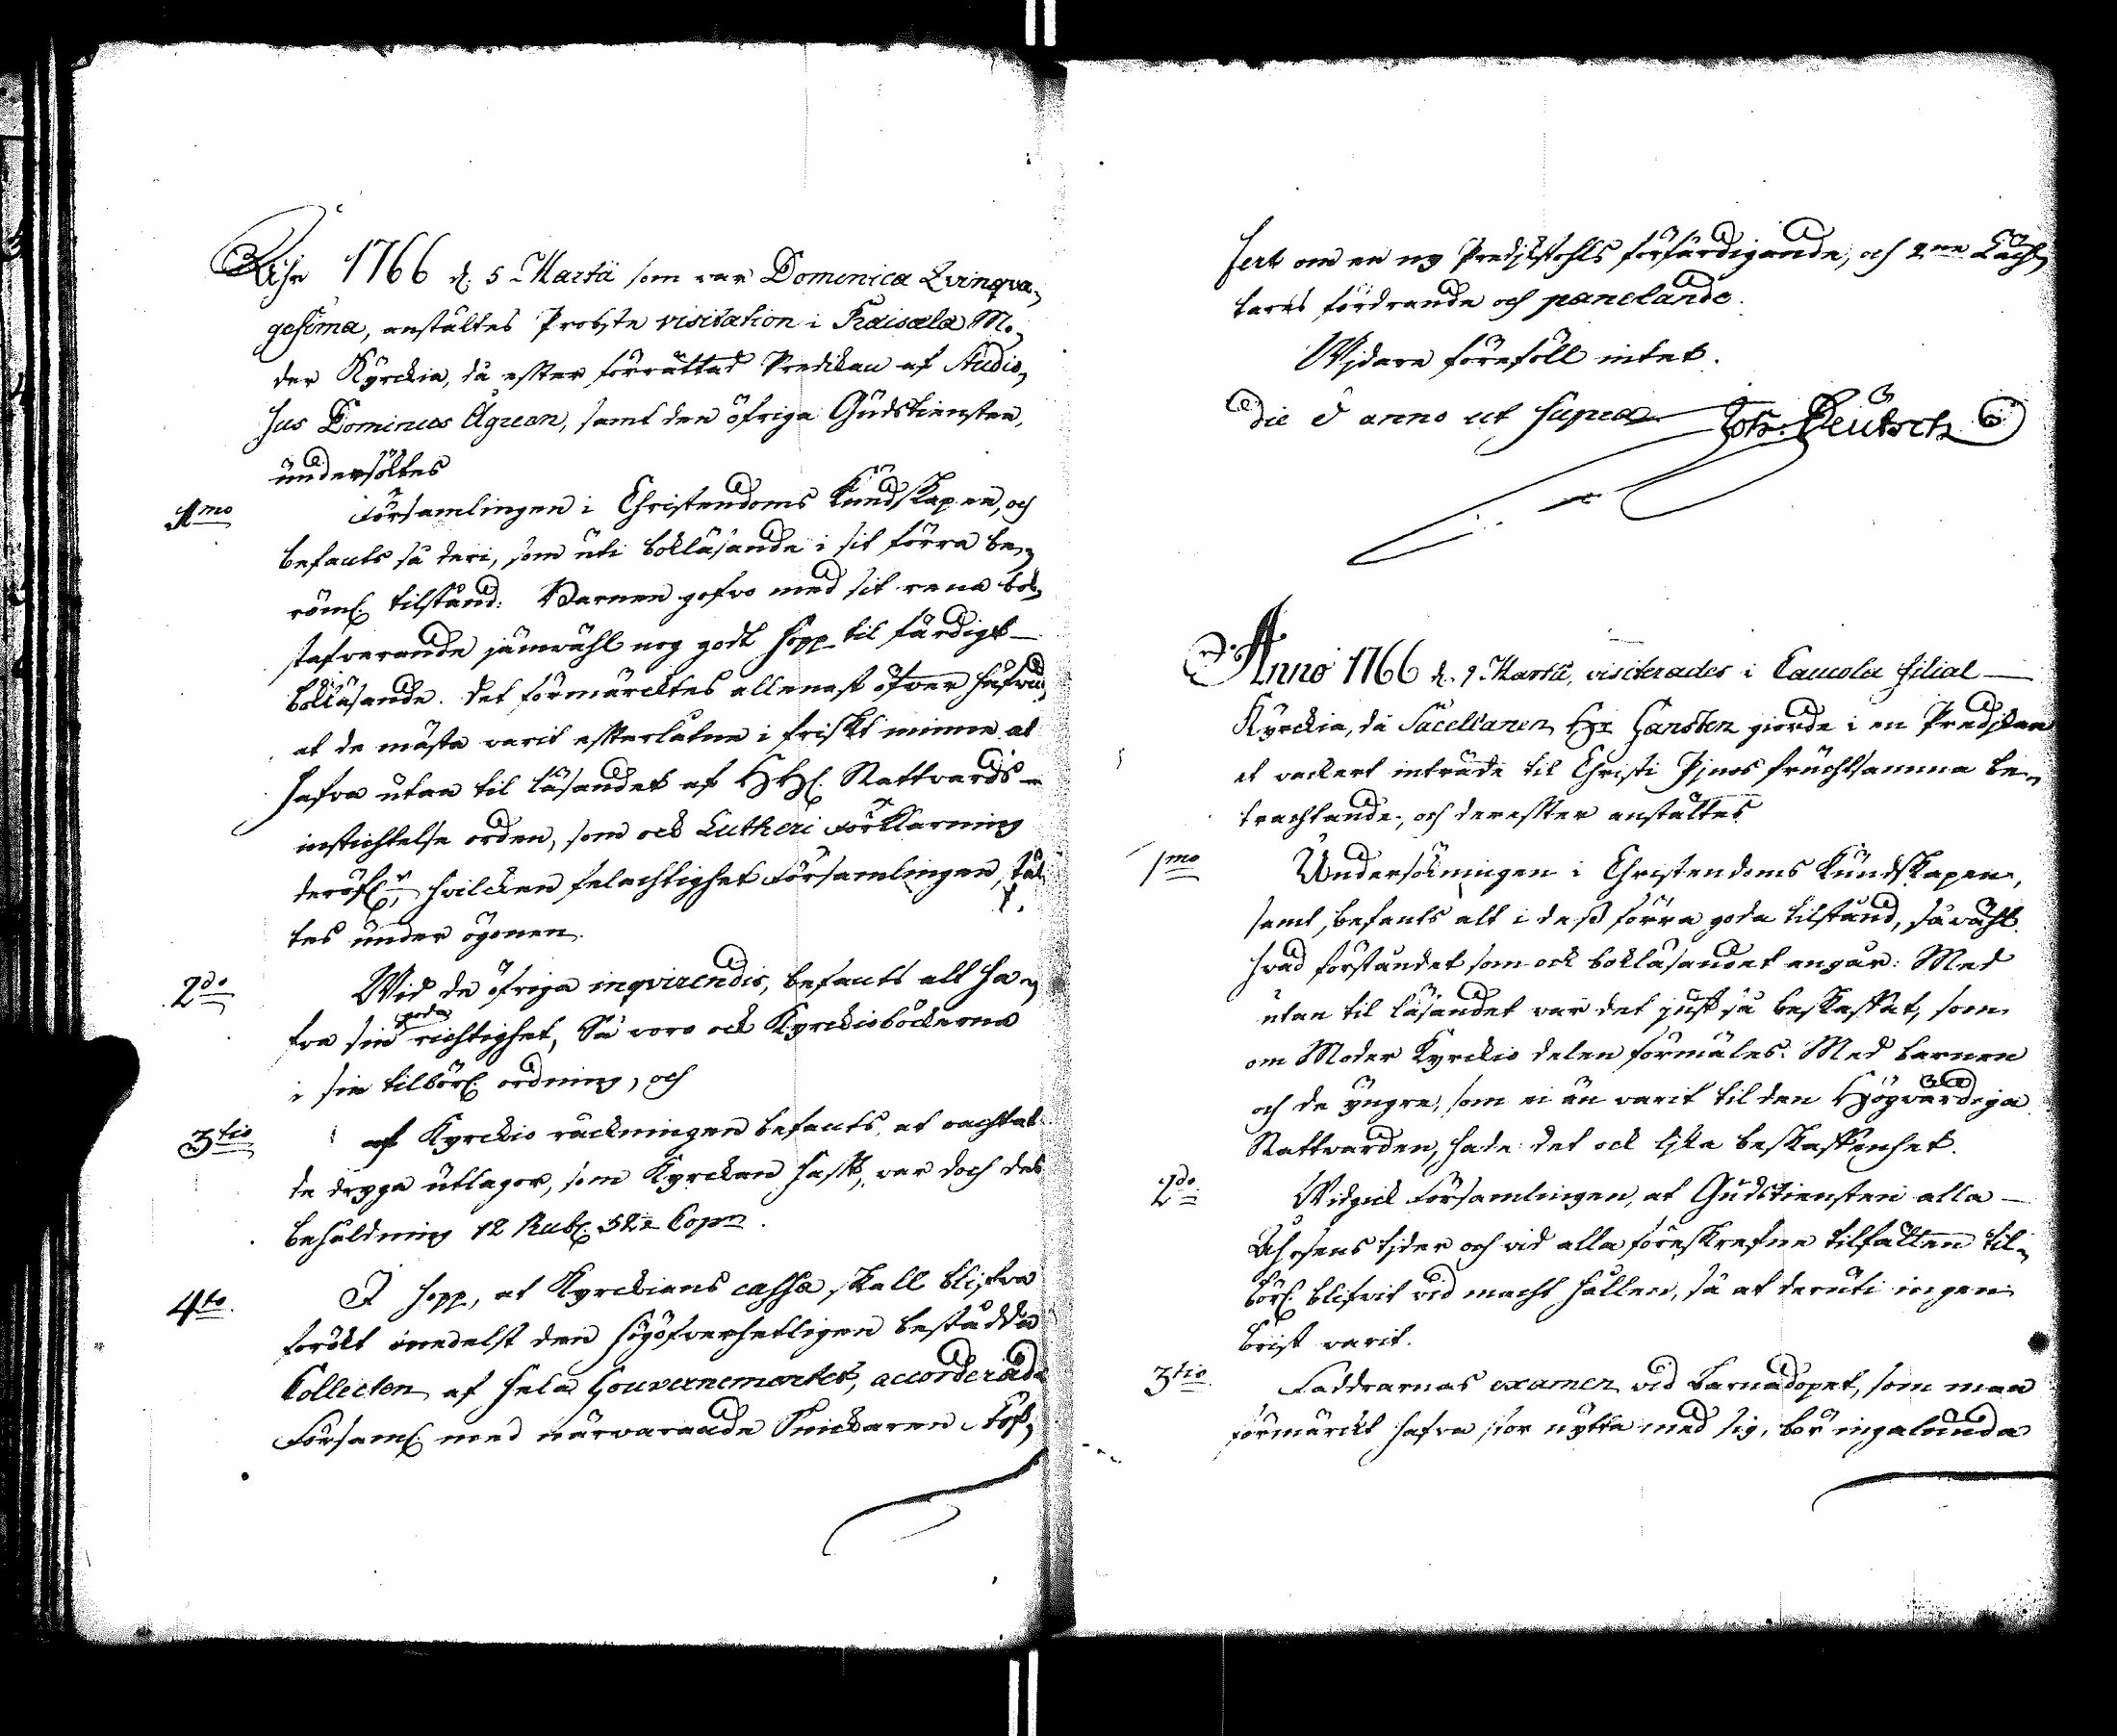 Åhr 1766 d. 5 Martii som var Dominica Qvinqva-
gesima, anstältes Probste visitation i Kaisala Mo-
der Kyrckia, då effter förrättad Predikan af Studio-
sus Dominus Ågren, samt den öfriga Gudstiensten,
undersöktes
1mo Församlingen i Christendoms Kundskapen, och
befants så deri, som uti bokläsande i sit förra be-
röml. tilstånd: Barnen gofvo med sit rena bok-
stafverande jämwähl nog godt hopp til färdigt
bokläsande. Det förmärcktes allenast öfver hufvud
at de mästa varit efterlåtne i friskt minne at
hafva utan til läsandet af HHl. Nattvards
instichtelse orden, som ock Lutheri Förklarning
deröfvr, hvilcken felachtighet Församlingen, stäl-
tes under ögonen.
2do Wid de öfriga inqvirendis, befants alt ha-
fva sin goda richtighet, Så voro ock Kyrckioböckerna
i sin tilbörl. ordning, och
3tio af Kyrckio räckningen befants, at oachtat
de dryga utlagor, som Kyrckan haft, var doch des
behåldning 12 Rubl. 52½ Copn.
4to I hopp, at Kyrckians cassa skall blifva
förökt medelst den högöfverhetligen bestådda
Collecten af hela Gouvernementet, accorderade
Församl. med närvarande Snickaren Tof-
fert om en ny Predikstohls förfärdigande, och 2ne Läch-
tares fördrande och panelande.
Widare föreföll intet.
Die & anno ut supra Joh. Deutsch
Anno 1766 d. 9 Martii, visiterades i Caucola filial
Kyrckia, då Sacellanen Hr Hansten giorde i en Predikan
et vackert inträde til Christi Pinos fruchtsamma be-
trachtande, och dereffter anstältes
1mo Undersökningen i Christendoms Kundskapen,
samt befants alt i dess förra goda tilstånd, såvähl
hvad förståndet som ock bokläsandet angår: Med
utan til läsandet var det just så beskaffat, som
om Moder Kyrckio delen förmäles. Med barnen
och de yngre, som ei än varit til den Högvärdiga
Nattvarden, hade det ock lika beskaffenhet.
2do Widgick Församlingen, at Gudstiensten alla
Åhrsens tider och vid alla föreskrefne tilfällen til-
börl. blifvit vid macht hållen, så at deruti ingen
brist varit.
3tio Faddrarnas examen vid barnadopet, som man
förmärckt hafva stor nytta med sig, bör ingalunda